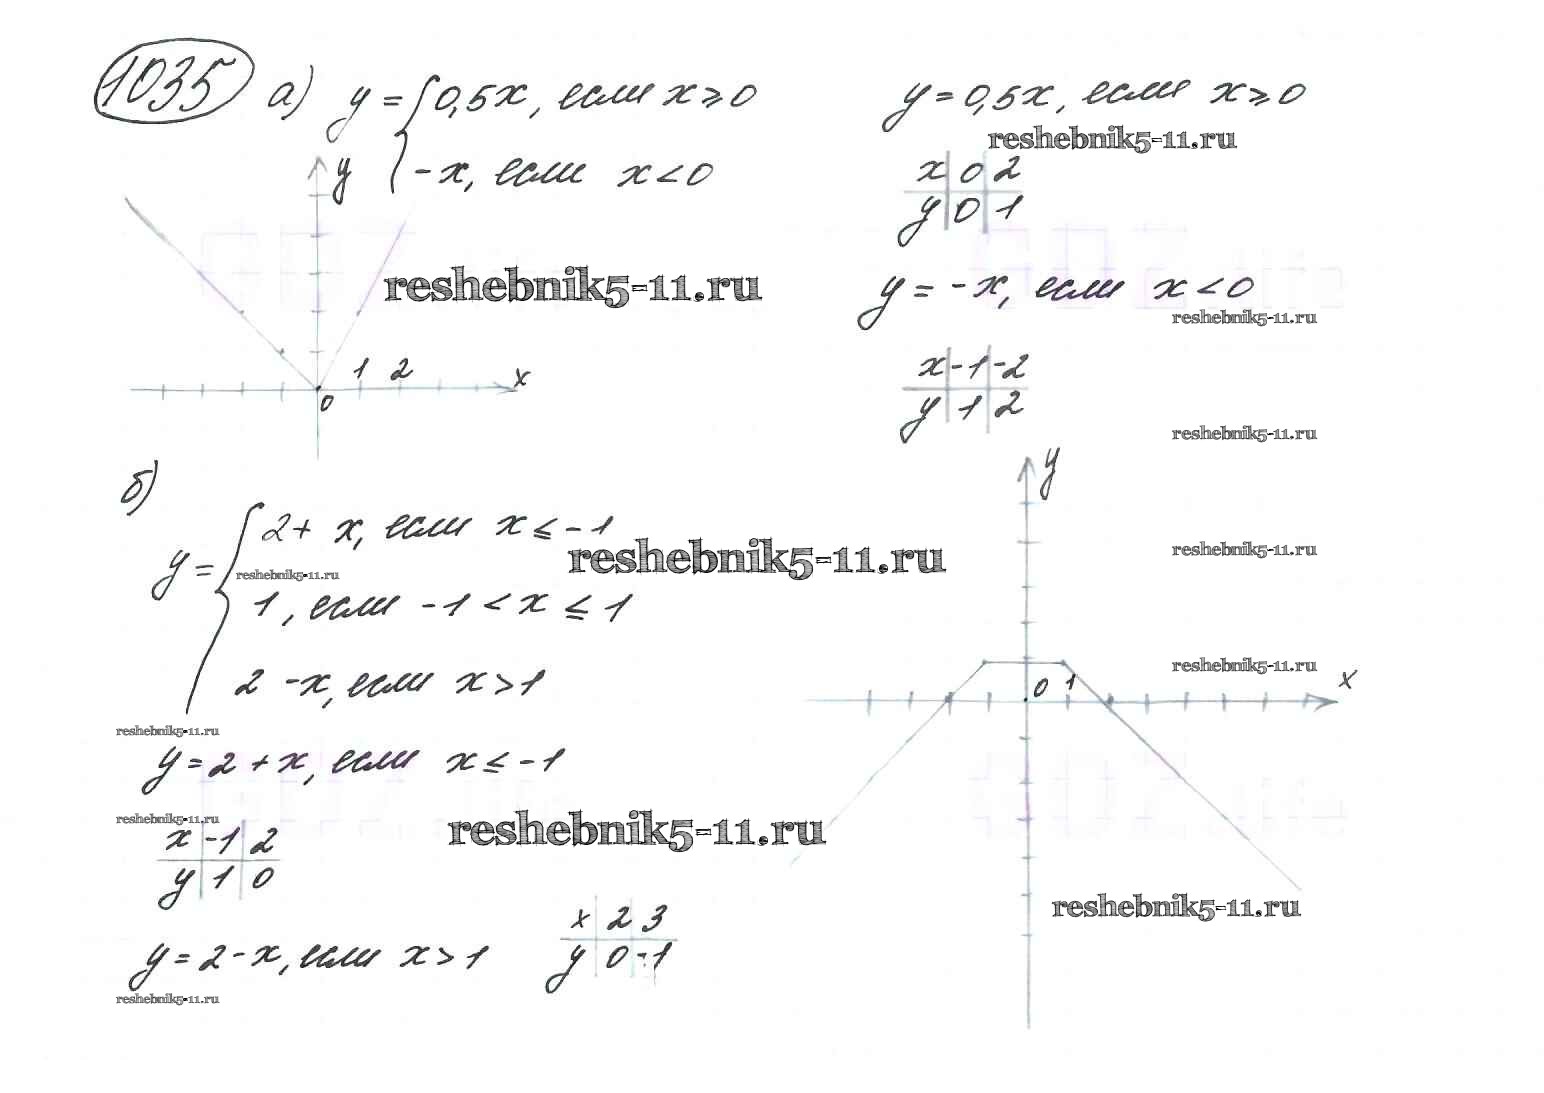 1035 а) y = { 0,5x, если x ⩾ 0
-x, если x < 0
y
1 2 x
0
y = 0,5x, если x ⩾ 0
reshebnik5-11.ru
x 0 2
y 0 1
reshebnik5-11.ru
y = -x, если x < 0
reshebnik5-11.ru
x -1 -2
y 1 2
reshebnik5-11.ru
б)
y = { 2 + x, если x ≤ -1
reshebnik5-11.ru
reshebnik5-11.ru
1, если -1 < x ≤ 1
2 - x, если x > 1
y
reshebnik5-11.ru
reshebnik5-11.ru
0 1 x
reshebnik5-11.ru
y = 2 + x, если x ≤ -1
reshebnik5-11.ru
x -1 2
y 1 0
reshebnik5-11.ru
reshebnik5-11.ru
y = 2 - x, если x > 1
x 2 3
y 0 -1
reshebnik5-11.ru